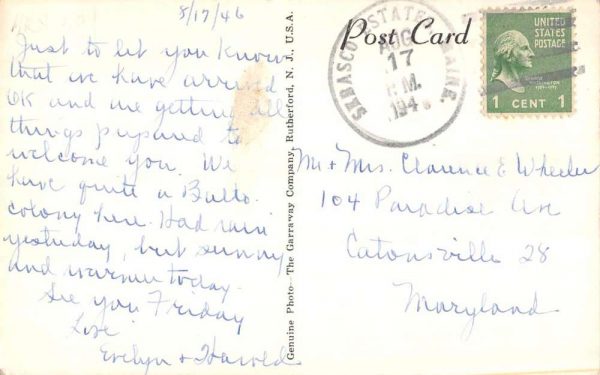 8/17/46
Just to let you know
that we have arrived
OK and are getting all
things prepared to
welcome you. We
have quite a Balto.
colony here. Had rain
yesterday, but sunny
and warmer today.
See you Friday
Love
Evelyn + Harold
Genuine Photo—The Garraway Company, Rutherford, N. J., U.S.A.
Post Card
SEBASCO ESTATES MAINE.
AUG
17
P.M.
194
UNITED
STATES
POSTAGE
1 CENT 1
Mr + Mrs. Clarence E Wheeler
104 Paradise Ave
Catonsville 28
Maryland